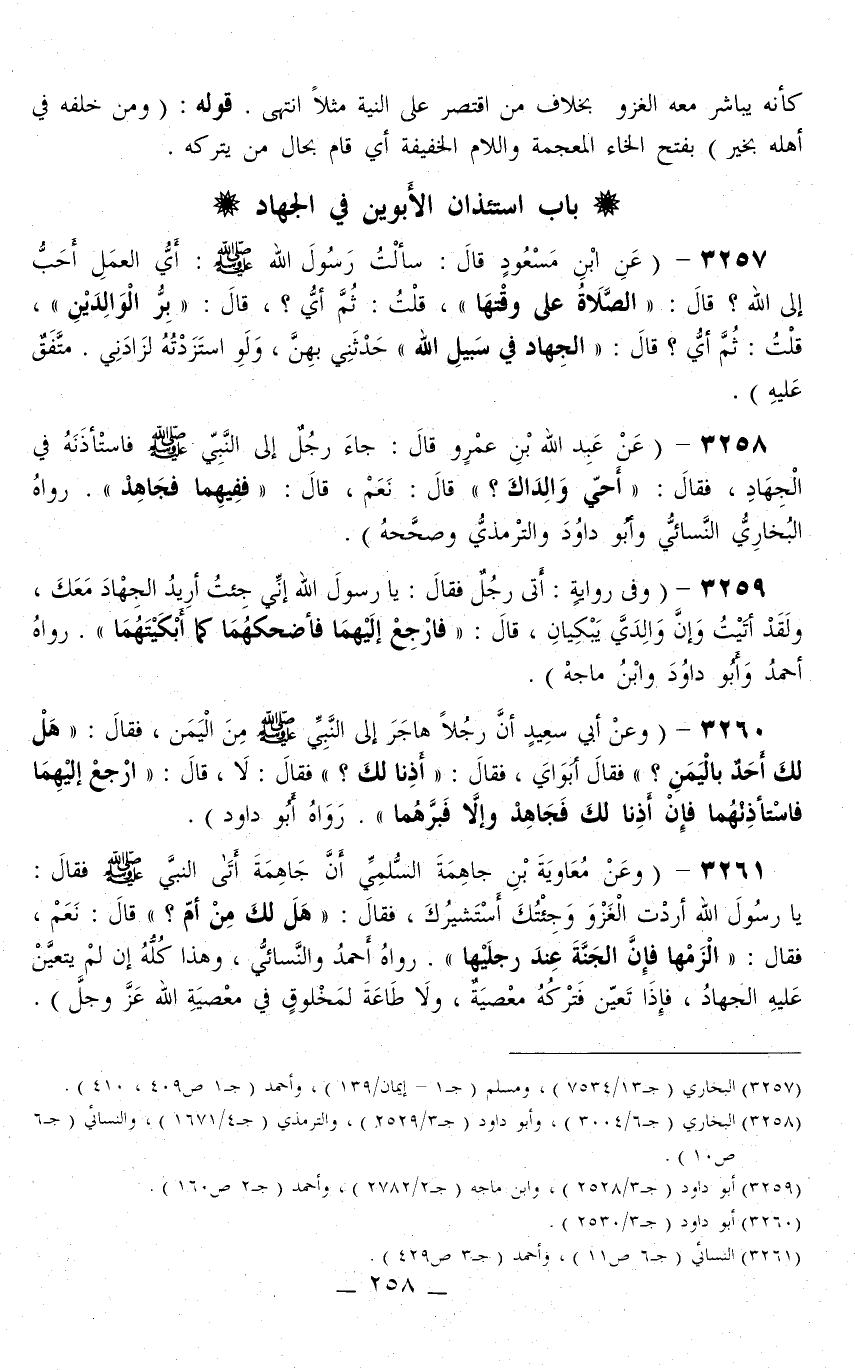 كأنه يباشر معه الغزو بخلاف من اقتصر على النية مثلاً انتهى . قوله : ( ومن خلفه في
أهله بخير ) بفتح الخاء المعجمة واللام الخفيفة أي قام بحال من يتركه .
✷ باب استئذان الأَبوين في الجهاد ✷
٣٢٥٧ – ( عَنِ ابْنِ مَسْعُودٍ قالَ : سألْتُ رَسُولَ الله ﷺ : أَيُّ العمَلِ أَحَبُّ
إلى الله ؟ قالَ : « الصَّلَاةُ على وقْتهَا » ، قلْتُ : ثُمَّ أيُّ ؟ ، قالَ : « بِرُّ الْوَالِدَيْنِ » ،
قلْتُ : ثُمَّ أيُّ ؟ قالَ : « الجِهاد في سَبيلِ الله » حَدْثَنِي بهِنَّ ، وَلَو استَزَدْتُهُ لزَادَنِي . متَّفَقٌ
عَليهِ ) .
٣٢٥٨ – ( عَنْ عَبِد الله بْنِ عمْرٍو قالَ : جاءَ رجُلٌ إلى النَّبِيّ ﷺ فاستْأذَنَهُ في
الْجِهَادِ ، فقالَ : « أَحيّ وَالِدَاكَ ؟ » قالَ : نَعَمْ ، قالَ : « ففِيهِما فجَاهِدْ » . رواهُ
البُخارِيُّ النَّسائيُّ وأبُو داوُدَ والترْمذيُّ وصحَّحهُ ) .
٣٢٥٩ – ( وفى روايةٍ : أَتى رجُلٌ فقالَ : يا رسولَ الله إنِّي جِئتُ أرِيدُ الجِهْادَ مَعَكَ ،
ولَقَدْ أتيْتُ وَإنَّ وَالِدَيَّ يَبْكيانِ ، قالَ : « فارْجِعْ إلَيْهِمَا فأضحكهُمَا كما أَبْكَيْتَهُمَا » . رواهُ
أحمدُ وَأَبُو داوُدَ وابْنُ ماجهْ ) .
٣٢٦٠ – ( وعنْ أبي سعِيدٍ أنَّ رجُلاً هاجَرَ إلى النَّبِيِّ ﷺ مِنَ الْيَمَن ، فقالَ : « هَلْ
لكَ أَحَدٌ بالْيَمَنِ ؟ » فقالَ أبَوَايَ ، فقالَ : « أَذِنا لكَ ؟ » فقالَ : لَا ، قالَ : « ارْجعْ إليْهِمَا
فاسْتأذِنْهُما فإنْ أَذِنا لكَ فَجَاهِدْ وإلَّا فَبَرَّهُما » . رَوَاهُ أَبُو داود ) .
٣٢٦١ – ( وعَنْ مُعَاوِيَةَ بْنِ جاهِمَةَ السُّلمِيِّ أَنَّ جَاهِمَةَ أَتَى النبيَّ ﷺ فقالَ :
يا رسُولَ الله أردْت الْغَزْوَ وَجِئْتُكَ أَسْتَشيرُكَ ، فقالَ : « هَلَ لكَ مِنْ أمّ ؟ » قالَ : نَعَمْ ،
فقال : « الْزَمْها فإِنَّ الجَنَّةَ عِندَ رجلَيْها » . رواهُ أَحمدُ والنَّسائيُّ ، وهذا كُلُّهُ إن لمْ يتعيَّنْ
عَليهِ الجهادُ ، فإِذَا تَعيّن فَتَرْكُهُ معْصيَةٌ ، ولَا طَاعَةَ لمَخْلوقٍ في معْصيَةِ الله عَزَّ وجلَّ ) .
(٣٢٥٧) البخاري ( جـ٧٥٣٤/١٣ ) ، ومسلم ( جـ١ – إيمان/١٣٩ ) ، وأحمد ( جـ١ ص٤٠٩ ، ٤١٠ ) .
(٣٢٥٨) البخاري ( جـ٣٠٠٤/٦ ) ، وأبو داود ( جـ٢٥٢٩/٣ ) ، والترمذي ( جـ١٦٧١/٤ ) ، والنسائي ( جـ٦
ص١٠ ) .
(٣٢٥٩) أبو داود ( جـ٢٥٢٨/٣ ) ، وابن ماجه ( جـ٢٧٨٢/٢ ) ، وأحمد ( جـ٢ ص١٦٠ ) .
(٣٢٦٠) أبو داود ( جـ٢٥٣٠/٣ ) .
(٣٢٦١) النسائي ( جـ٦ ص١١ ) ، وأحمد ( جـ٣ ص٤٢٩ ) .
– ٢٥٨ –